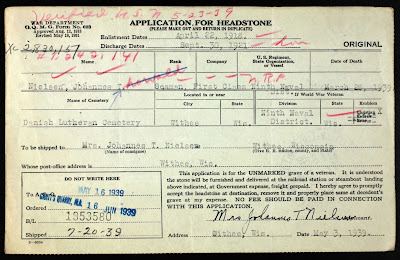 Verified U.S.N. 5-23-39
WAR DEPARTMENT
O. Q. M. G. Form No. 623
Approved Aug. 12, 1915
Revised May 21, 1931
APPLICATION FOR HEADSTONE
(PLEASE MAKE OUT AND RETURN IN DUPLICATE)
Enlistment Dates
Discharge Dates Sept. 30, 1921
ORIGINAL
Name Rank Company U.S. Regiment, State Organization, or Vessel Date of Death
Nielsen, Johannes T. Seaman, First Class Ninth Naval
Name of Cemetery Located in or near Division, State Emblem
City State
Danish Lutheran Cemetery Withee Wis. Ninth Naval District. Wis. X
To be shipped to Mrs. Johannes T. Nielsen Withee, Wisconsin
(Name of consignee)
Whose post-office address is Withee, Wis.
DO NOT WRITE HERE
MAY 16 1939
16 JUN 1939
B/L 1953580
Shipped 7-20-39
This application is for the UNMARKED grave of a veteran. It is understood the stone will be furnished and delivered to the railroad station or steamboat landing above indicated, at Government expense, freight prepaid. I hereby agree to promptly accept the headstone at destination, remove it and properly place same at decedent's grave at my expense. NO FEE SHOULD BE PAID IN CONNECTION WITH THIS APPLICATION.
Mrs Johannes T Nielsen Applicant.
Address Withee, Wis. Date May 3, 1939.